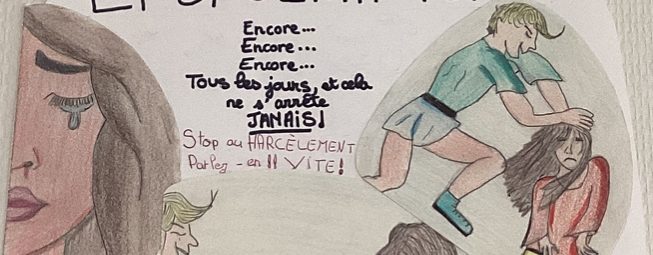 Encore...
Encore...
Encore...
Tous les jours, et cela
ne s'arrête
JANAIS!
Stop au HARCÈLEMENT
Parlez-en !! VITE!